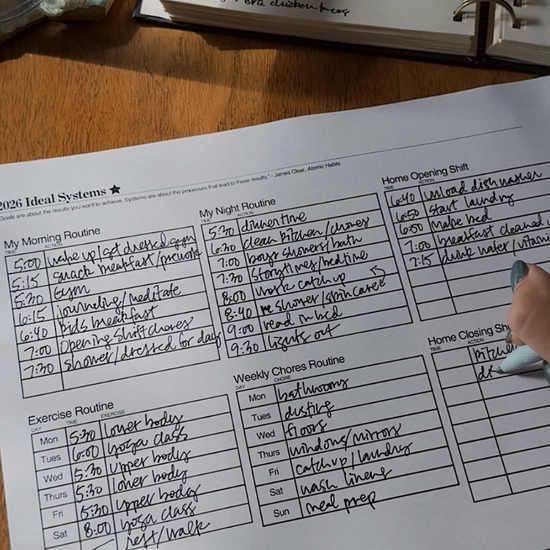 BBQ chicken
2026 Ideal Systems ★
"Goals are about the results you want to achieve. Systems are about the processes that lead to those results." - James Clear, Atomic Habits
My Morning Routine
TIME ACTION
5:00 wake up/get dressed gym
5:15 snack breakfast/prework
5:30 Gym
6:15 journaling/meditate
6:40 kids breakfast
7:00 Opening shift chores
7:30 shower/dressed for day
My Night Routine
TIME ACTION
5:30 dinner time
6:30 clean kitchen/chores
7:00 boys showers/bath
7:30 storytimes/bedtime
8:00 work catch up
8:40 me shower/skincare
9:00 read in bed
9:30 lights out
Home Opening Shift
TIME ACTION
6:40 unload dishwasher
6:50 start laundry
6:50 make bed
7:00 breakfast cleaned
7:15 drink water/vitami
Exercise Routine
DAY TIME EXERCISE
Mon 5:30 lower body
Tues 6:00 yoga class
Wed 5:30 upper body
Thurs 5:30 lower body
Fri 5:30 upper body
Sat 8:00 yoga class
rest/walk
Weekly Chores Routine
DAY CHORE
Mon bathrooms
Tues dusting
Wed floors
Thurs windows/mirrors
Fri catchup/laundry
Sat wash linens
Sun meal prep
Home Closing Sh
TIME ACTION
kitche